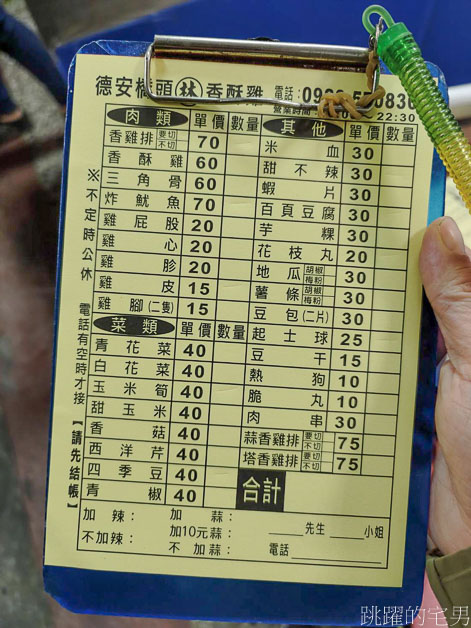 德安橋頭 林 香酥雞 電話:
營業時間: 22:30
肉類 單價 數量
香雞排 要切 不切 70
香酥雞 60
三角骨 60
炸魷魚 70
雞屁股 20
雞心 20
雞胗 20
雞皮 15
雞腳(二隻) 15
菜類 單價 數量
青花菜 40
白花菜 40
玉米筍 40
甜玉米 40
香菇 40
西洋芹 40
四季豆 40
青椒 40
其他 單價 數量
米血 30
甜不辣 30
蝦片 30
百頁豆腐 30
芋粿 30
花枝丸 20
地瓜 胡椒 梅粉 30
薯條 胡椒 梅粉 30
豆包(二片) 30
起士球 25
豆干 15
熱狗 10
脆丸 10
肉串 30
蒜香雞排 要切 不切 75
塔香雞排 要切 不切 75
合計
加辣: 加蒜:
加10元蒜: 先生 小姐
不加辣: 不加蒜: 電話
※不定時公休 電話有空時才接【請先結帳】
跳躍的宅男